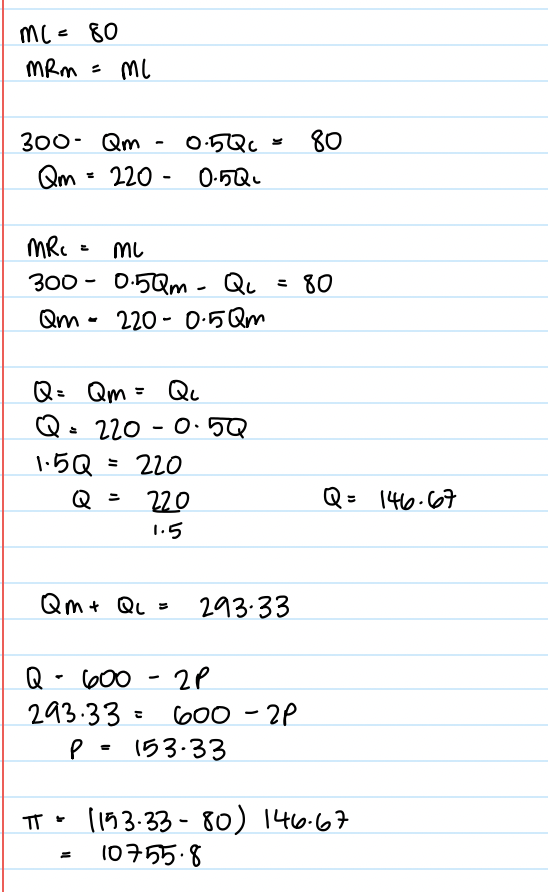 MC = 80
MRm = MC
300 - Qm - 0.5Qc = 80
Qm = 220 - 0.5Qc
MRc = MC
300 - 0.5Qm - Qc = 80
Qm = 220 - 0.5Qm
Q = Qm = Qc
Q = 220 - 0.5Q
1.5Q = 220
Q = 220/1.5 Q = 146.67
Qm + Qc = 293.33
Q = 600 - 2P
293.33 = 600 - 2P
P = 153.33
π = (153.33 - 80) 146.67
= 10755.8